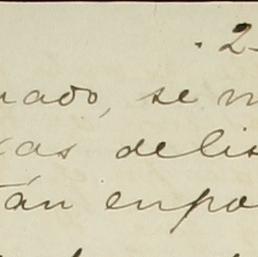 . 2-
uado, se m
xas delis
tán enpo